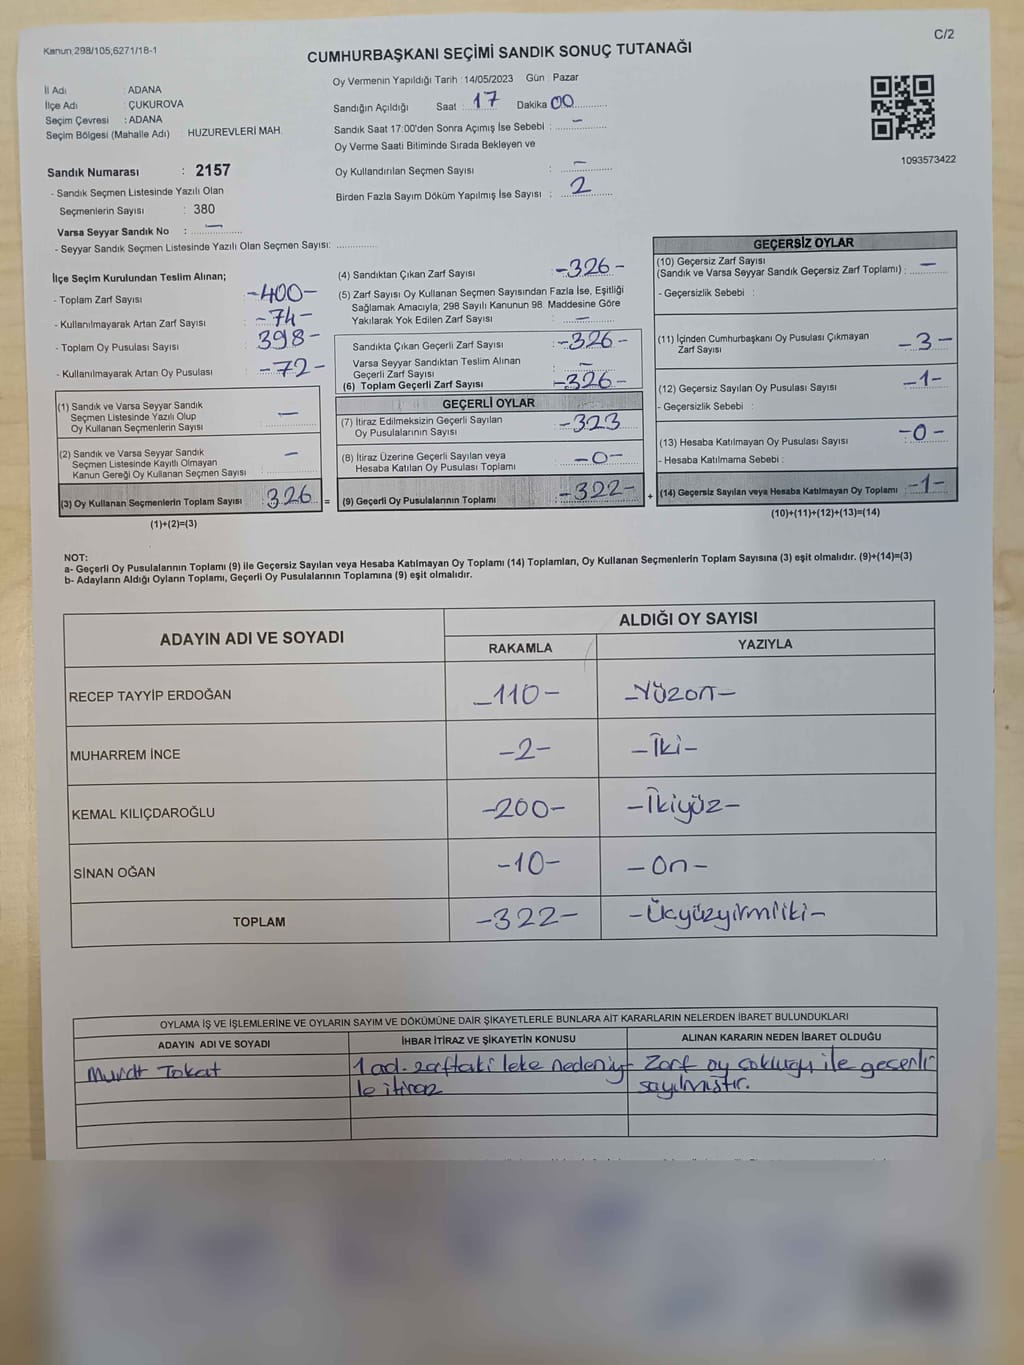 Kanun 298/105,6271/18-1
C/2
CUMHURBAŞKANI SEÇİMİ SANDIK SONUÇ TUTANAĞI
İl Adı : ADANA
İlçe Adı : ÇUKUROVA
Seçim Çevresi : ADANA
Seçim Bölgesi (Mahalle Adı) : HUZUREVLERİ MAH.
Sandık Numarası : 2157
- Sandık Seçmen Listesinde Yazılı Olan
Seçmenlerin Sayısı : 380
Varsa Seyyar Sandık No : –
- Seyyar Sandık Seçmen Listesinde Yazılı Olan Seçmen Sayısı: ............
Oy Vermenin Yapıldığı Tarih : 14/05/2023 Gün : Pazar
Sandığın Açıldığı Saat : 17 Dakika 00
Sandık Saat 17:00'den Sonra Açımış İse Sebebi : –
Oy Verme Saati Bitiminde Sırada Bekleyen ve
Oy Kullandırılan Seçmen Sayısı : –
Birden Fazla Sayım Döküm Yapılmış İse Sayısı : 2
1093573422
İlçe Seçim Kurulundan Teslim Alınan;
- Toplam Zarf Sayısı -400-
- Kullanılmayarak Artan Zarf Sayısı -74-
- Toplam Oy Pusulası Sayısı 398-
- Kullanılmayarak Artan Oy Pusulası -72-
(1) Sandık ve Varsa Seyyar Sandık
Seçmen Listesinde Yazılı Olup
Oy Kullanan Seçmenlerin Sayısı –
(2) Sandık ve Varsa Seyyar Sandık
Seçmen Listesinde Kayıtlı Olmayan
Kanun Gereği Oy Kullanan Seçmen Sayısı –
(3) Oy Kullanan Seçmenlerin Toplam Sayısı 326 =
(1)+(2)=(3)
(4) Sandıktan Çıkan Zarf Sayısı -326-
(5) Zarf Sayısı Oy Kullanan Seçmen Sayısından Fazla İse, Eşitliği
Sağlamak Amacıyla; 298 Sayılı Kanunun 98. Maddesine Göre
Yakılarak Yok Edilen Zarf Sayısı : –
Sandıkta Çıkan Geçerli Zarf Sayısı :-326-
Varsa Seyyar Sandıktan Teslim Alınan
Geçerli Zarf Sayısı : –
(6) Toplam Geçerli Zarf Sayısı -326-
GEÇERLİ OYLAR
(7) İtiraz Edilmeksizin Geçerli Sayılan
Oy Pusulalarının Sayısı -323
(8) İtiraz Üzerine Geçerli Sayılan veya
Hesaba Katılan Oy Pusulası Toplamı -0-
(9) Geçerli Oy Pusulalarının Toplamı -322- +
GEÇERSİZ OYLAR
(10) Geçersiz Zarf Sayısı
(Sandık ve Varsa Seyyar Sandık Geçersiz Zarf Toplamı) : –
- Geçersizlik Sebebi :
(11) İçinden Cumhurbaşkanı Oy Pusulası Çıkmayan
Zarf Sayısı -3-
(12) Geçersiz Sayılan Oy Pusulası Sayısı -1-
- Geçersizlik Sebebi :
(13) Hesaba Katılmayan Oy Pusulası Sayısı -0-
- Hesaba Katılmama Sebebi :
(14) Geçersiz Sayılan veya Hesaba Katılmayan Oy Toplamı -1-
(10)+(11)+(12)+(13)=(14)
NOT:
a- Geçerli Oy Pusulalarının Toplamı (9) ile Geçersiz Sayılan veya Hesaba Katılmayan Oy Toplamı (14) Toplamları, Oy Kullanan Seçmenlerin Toplam Sayısına (3) eşit olmalıdır. (9)+(14)=(3)
b- Adayların Aldığı Oyların Toplamı, Geçerli Oy Pusulalarının Toplamına (9) eşit olmalıdır.
ADAYIN ADI VE SOYADI ALDIĞI OY SAYISI
RAKAMLA YAZIYLA
RECEP TAYYİP ERDOĞAN -110- -Yüzon-
MUHARREM İNCE -2- -İki-
KEMAL KILIÇDAROĞLU -200- -İkiyüz-
SİNAN OĞAN -10- -On-
TOPLAM -322- -Üçyüzyirmiiki-
OYLAMA İŞ VE İŞLEMLERİNE VE OYLARIN SAYIM VE DÖKÜMÜNE DAİR ŞİKAYETLERLE BUNLARA AİT KARARLARIN NELERDEN İBARET BULUNDUKLARI
ADAYIN ADI VE SOYADI İHBAR İTİRAZ VE ŞİKAYETİN KONUSU ALINAN KARARIN NEDEN İBARET OLDUĞU
Murat Tokat 1 ad. zarftaki leke nedeniy- Zarf oy çokluğu ile geçerli
le itiraz sayılmıştır.